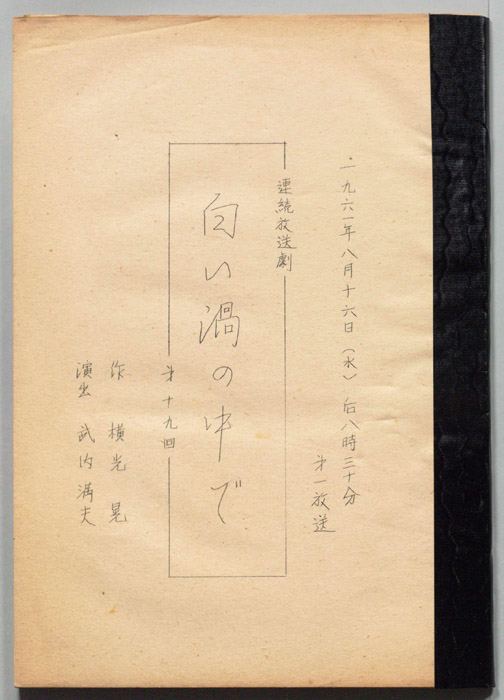 一九六一年八月十六日(水)后八時三十分
第一放送
連続放送劇
白い渦の中で
第十九回
作 横光 晃
演出 武内満夫